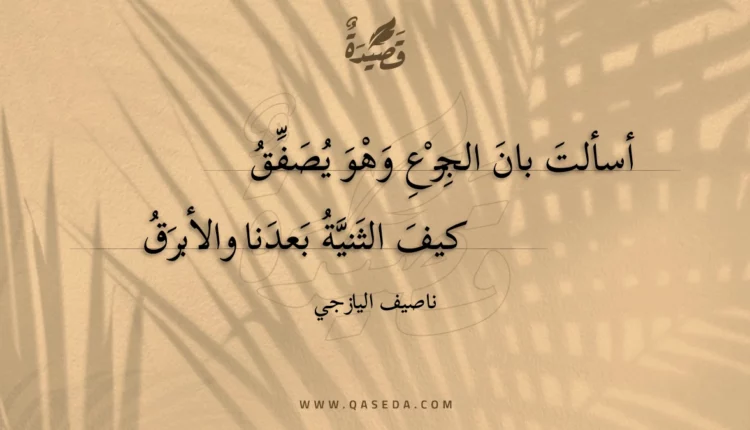 قَصِيْدَةٌ
أسألتَ بانَ الجِزْعِ وَهْوَ يُصَفِّقُ
كيفَ الثَنيَّةُ بَعدَنا والأبرَقُ
ناصيف اليازجي
WWW.QASEDA.COM